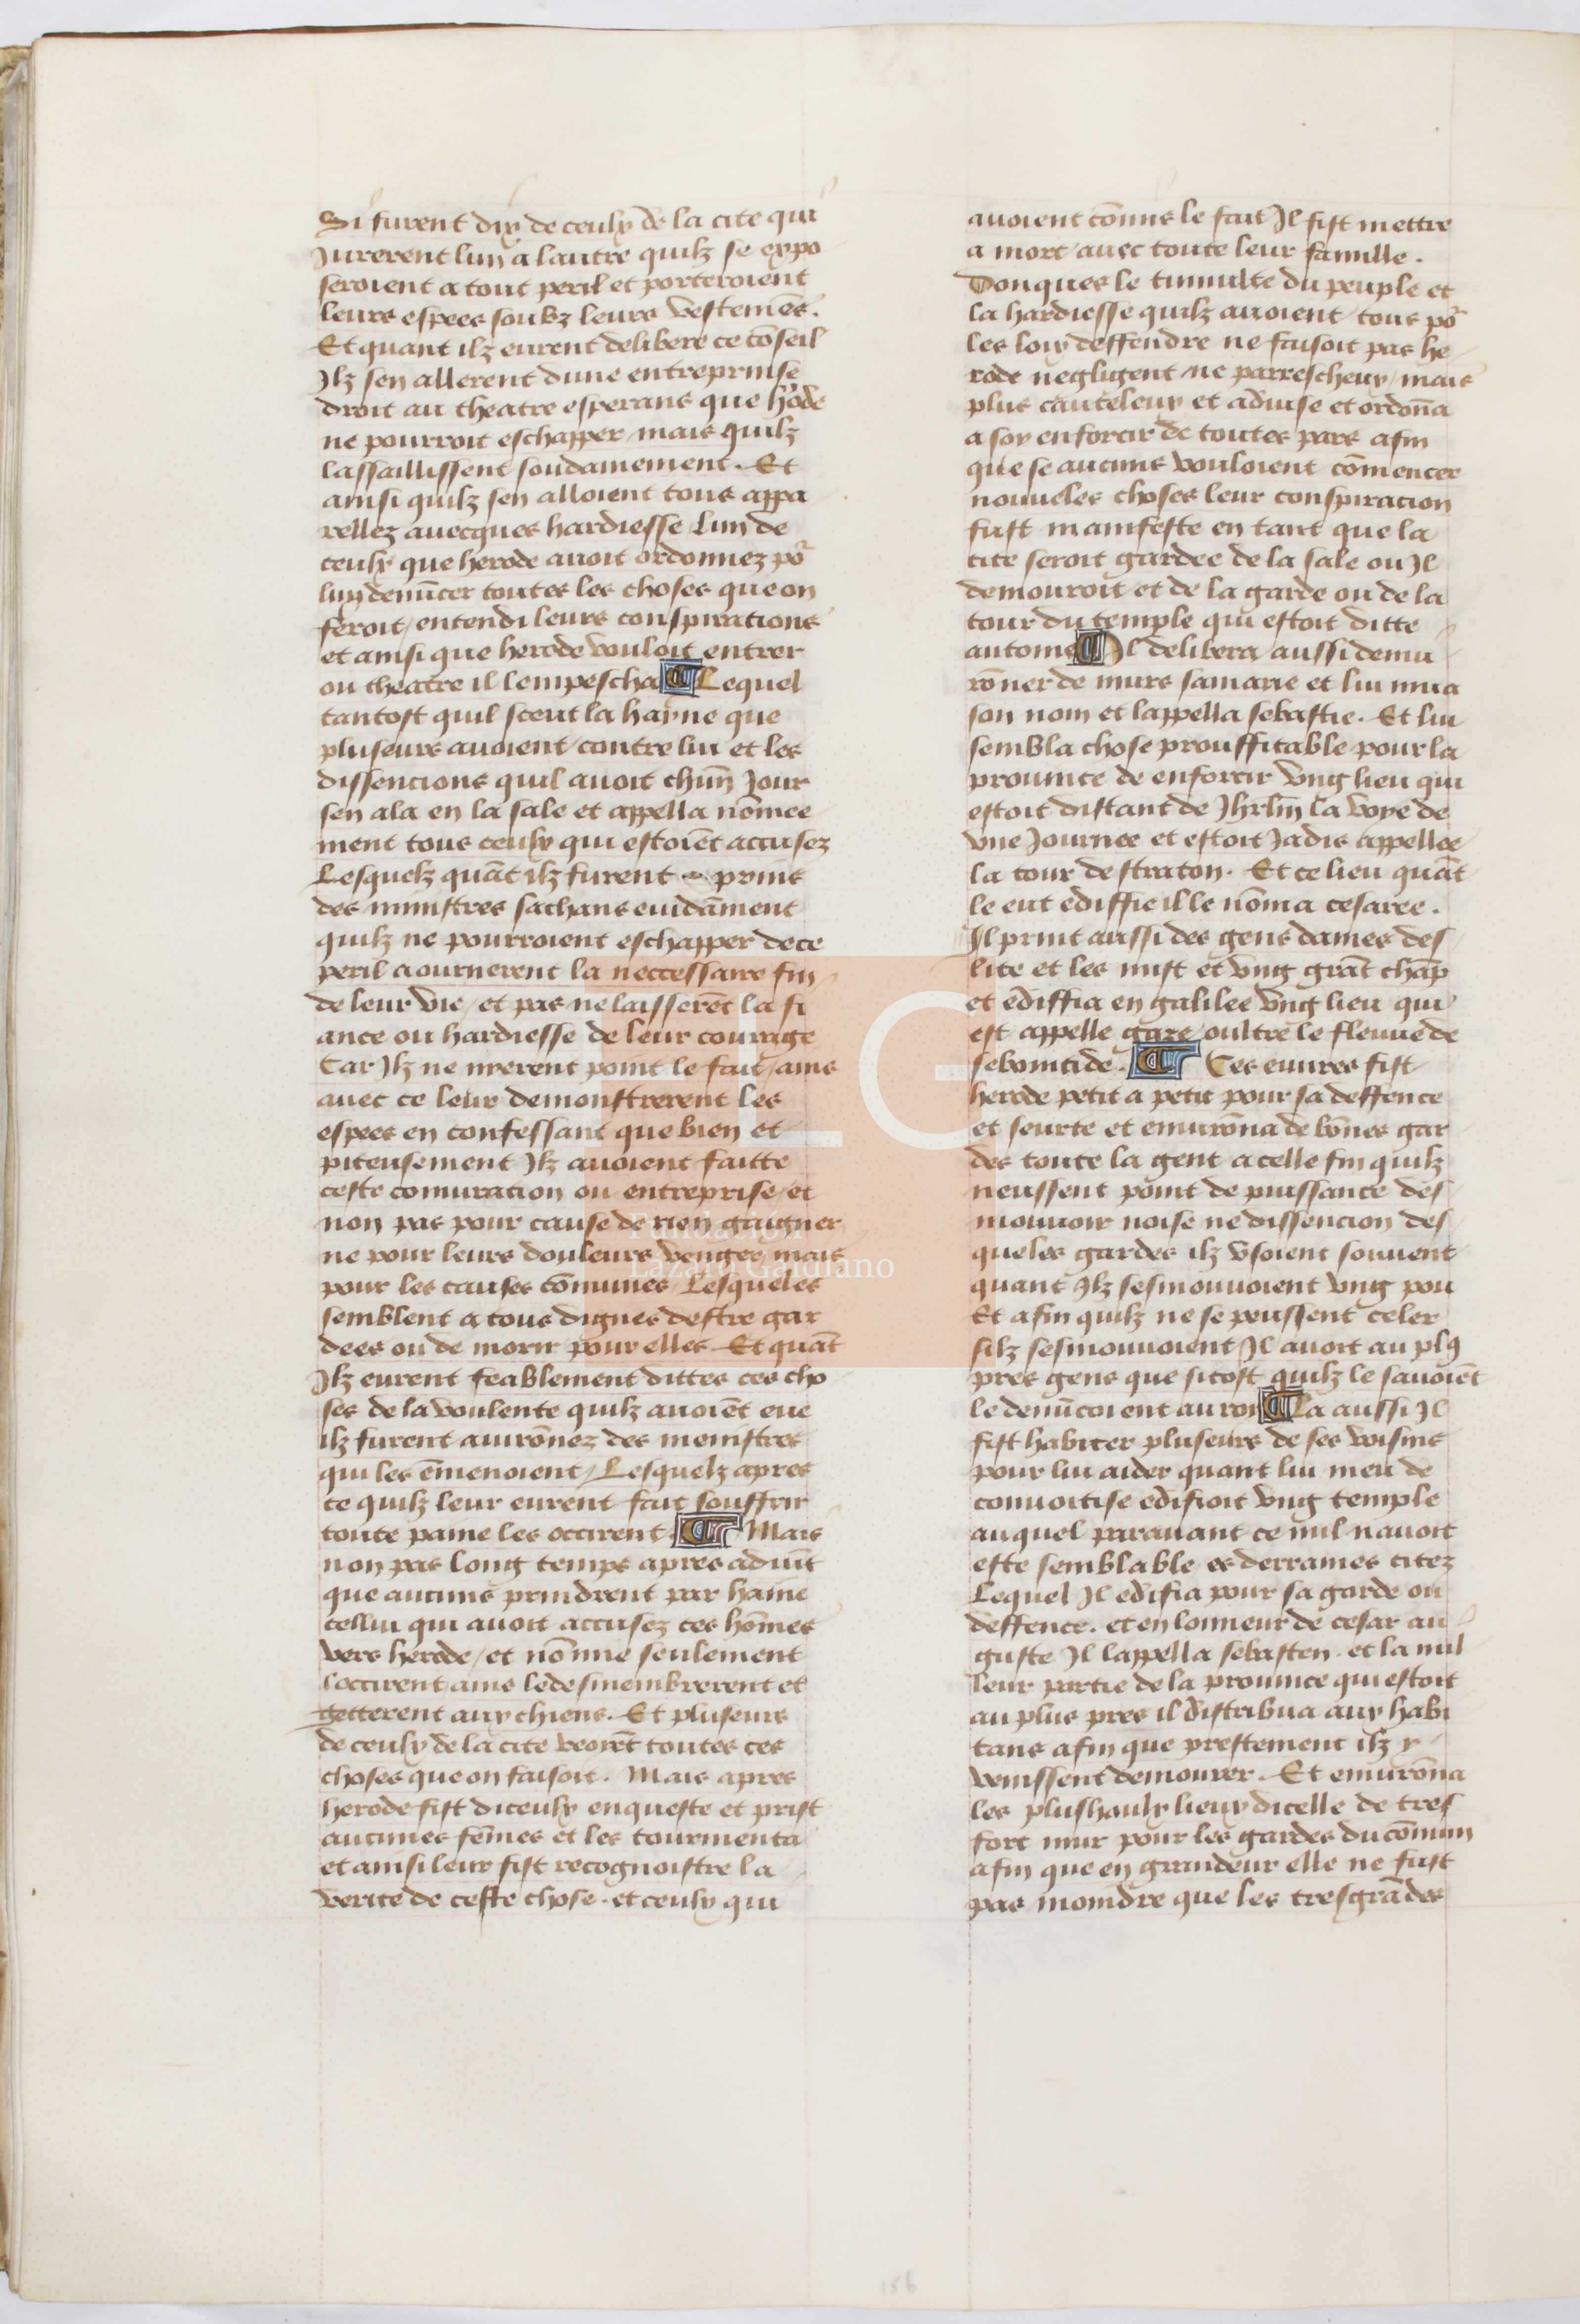 Si furent dix de ceulx de la cite qui
Jurerent lun a lautre quilz se expo
seroient a tout peril et porteroient
leurs espees soubz leurs vestemēs.
Et quant ilz eurent delibere ce cōseil
Ilz sen allerent dune entreprinse
droit au theatre esperans que hode
ne pourroit eschapper mais quilz
lassaillissent soudainement. Et
ainsi quilz sen alloient tous appa
reillez avecques hardiesse Lun de
ceulx que herode avoit ordonnez po
luy denūcer toutes les choses que on
feroit / entendi leurs conspirations
et ainsi que herode vouloit entrer
ou theatre il lempescha ¶ Lequel
tantost quil sceut la hayne que
pluseurs avoient contre lui et les
dissencions quil avoit chūn Jour
sen ala en la sale et appella nōmee
ment tous ceulx qui estoiēt accusez
Lesquelz quāt ilz furent prins
des ministres sachans evidāment
quilz ne pourroient eschapper de ce
peril aournerent la neccessaire fin
de leur vie / et pas ne laisserēt la fi
ance ou hardiesse de leur courage
Car Ilz ne nyerent point le fait / ains
avec ce leur demonstrerent les
espees en confessant que bien et
piteusement Ilz avoient faitte
ceste coniuracion ou entreprise / et
non pas pour cause de rien gaigner
ne pour leurs douleurs venger mais
pour les causes cōmunes / Lesqueles
semblent a tous dignes destre gar
dees ou de morir pour elles. Et quāt
Ilz eurent feablement dittes ces cho
ses de la voulente quilz avoiēt eue
ilz furent avirōnez des menistres
qui les ēmenoient / Lesquelz apres
ce quilz leur eurent fait souffrir
toute paine les occirent. ¶ Mais
non pas long temps apres advīt
que aucuns prindrent par haine
cellui qui avoit accusez ces hōmes
vers herode / et nō mie seulement
loccirent ains le desmembrerent et
getterent aux chiens. Et pluseurs
de ceulx de la cite veoiēt toutes ces
choses que on faisoit. Mais apres
herode fist diceulx enqueste et prist
aucunes fēmes et les tourmenta
et ainsi leur fist recognoistre la
verite de ceste chose. et ceulx qui
avoient cōnus le fait Il fist mettre
a mort avec toute leur famille.
Donques le tumulte du peuple et
la hardiesse quilz avoient tous po
les loix deffendre ne faisoit pas he
rode negligent ne parrescheux / mais
plus cauteleux et advise et ordōna
a soy enforcir de toutes pars afin
que se aucuns vouloient cōmencer
nouveles choses leur conspiracion
fust manifeste en tant que la
cite seroit gardee de la sale ou Il
demouroit et de la garde ou de la
tour du temple qui estoit ditte
antoine ¶ Il delibera aussi denvi
rōner de murs samarie et lui mua
son nom et lappella sebastie. Et lui
sembla chose prouffitable pour la
province de enforcir vng lieu qui
estoit distant de Jhrlm̄ la voye de
vne Journee et estoit Jadis appellee
la tour de straton. Et ce lieu quāt
le eut ediffie il le nōma cesaree.
Il print aussi des gens darmes des
lite et les mist et vng grāt chāp
et ediffia en galilee vng lieu qui
est appelle gaze / oultre le fleuve de
sebonitide. ¶ Ces euvres fist
herode petit a petit pour sa deffence
et seurte et envirōna de bōnes gar
des toute la gent a celle fin quilz
neussent point de puissance des
mouvoir noise ne dissencion des
queles gardes ilz vsoient souvent
quant Ilz sesmouvoient vng pou
Et afin quilz ne se peussent celer
silz sesmouvoient Il avoit au plꝰ
pres gens que sitost quilz le savoiēt
le denūcoient au roy ¶ La aussi Il
fist habiter pluseurs de ses voisins
pour lui aider quant lui meu de
convoitise edifioit vng temple
auquel paravant ce nul navoit
este semblable es derraines citez
Lequel Il edifia pour sa garde ou
deffence. et en lonneur de cesar au
guste Il lappella sebasten. et la mil
leur partie de la province qui estoit
au plus pres il distribua aux habi
tans afin que prestement ilz y
venissent demourer. Et envirōna
les plus haulx lieux dicelle de tres
fort mur pour les gardes du cōmun
afin que en grandeur elle ne fust
pas moindre que les tresgrādes
LG
Fundación
Lázaro Galdiano
156